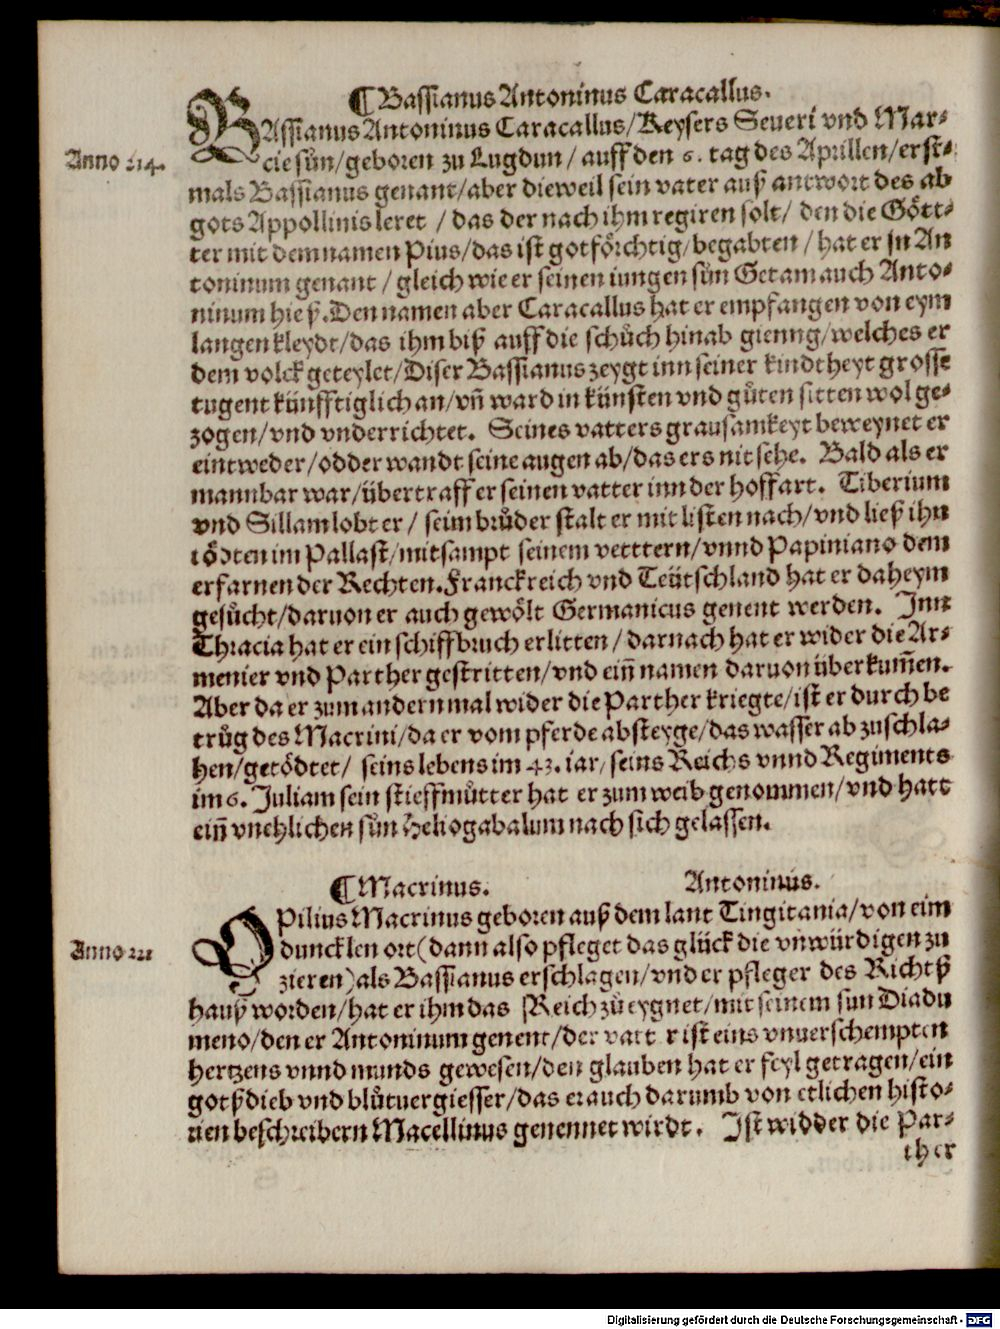 ¶ Bassianus Antoninus Caracallus.
BAssianus Antoninus Caracallus/Keysers Seueri vnd Mar-
Anno 214.
cie sůn/geboren zu Lugdun/auff den 6. tag des Aprillen/erst-
mals Bassianus genant/aber dieweil sein vater auß antwort des ab
gots Appollinis leret /das der nach ihm regiren solt/ den die Gött-
ter mit dem namen Pius/das ist gotförchtig/begabten/hat er jn An
toninum genant/gleich wie er seinen iungen sůn Getam auch Anto-
ninum hieß.Den namen aber Caracallus hat er empfangen von eym
langen kleydt/das ihm biß auff die schůch hinab gienng/welches er
dem volck geteylet/Diser Bassianus zeygt inn seiner kindtheyt grosse
tugent künfftiglich an/vñ ward in künsten vnd gůten sitten wol ge-
zogen/vnd vnderrichtet. Seines vatters grausamkeyt beweynet er
eintweder/odder wandt seine augen ab/das ers nit sehe. Bald als er
mannbar war/übertraff er seinen vatter inn der hoffart. Tiberium
vnd Sillam lobt er/ seim brůder stalt er mit listen nach/vnd ließ ihn
tödten im Pallast/mitsampt seinem vetttern/vnnd Papiniano dem
erfarnen der Rechten.Franckreich vnd Teütschland hat er daheym
gesůcht/daruon er auch gewölt Germanicus genent werden. Inn
Thracia hat er ein schiffbruch erlitten/darnach hat er wider die Ar-
menier vnd Parther gestritten/vnd eiñ namen daruon überkum̃en.
Aber da er zum andern mal wider die Parther kriegte/ist er durch be
trůg des Macrini/da er vom pferde absteyge/das wasser ab zuschla-
hen/getödtet/ seins lebens im 43. iar/seins Reichs vnnd Regiments
im 6. Juliam sein stieffmůtter hat er zum weib genommen/vnd hatt
eiñ vnehlichen sůn Heliogabalum nach sich gelassen.
¶ Macrinus. Antoninus.
OPilius Macrinus geboren auß dem lant Tingitania/von eim
Anno 221
duncklen ort(dann also pfleget das glück die vnwürdigen zu
zieren)als Bassianus erschlagen/vnd er pfleger des Richtß
hauß worden/hat er ihm das Reich zů eygnet/mit seinem sun Diadu
meno/den er Antoninum genent/der vatt r ist eins vnuerschempten
hertzens vnnd munds gewesen/den glauben hat er feyl getragen/ein
gotßdieb vnd blůtuergiesser/das er auch darumb von etlichen histo-
rien beschreibern Macellinus genennet wirdt. Ist widder die Par-
ther
Digitalisierung gefördert durch die Deutsche Forschungsgemeinschaft - DFG